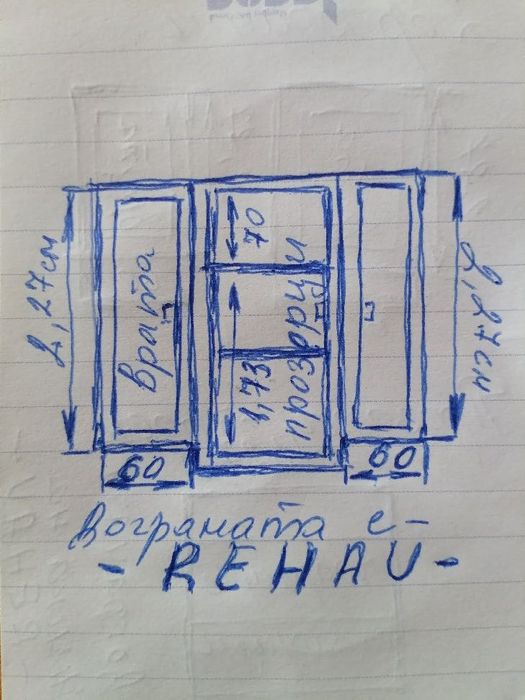 2,27см
врата
70
1,73
прозорци
2,27см
60
60
Дограмата е -
- REHAU -